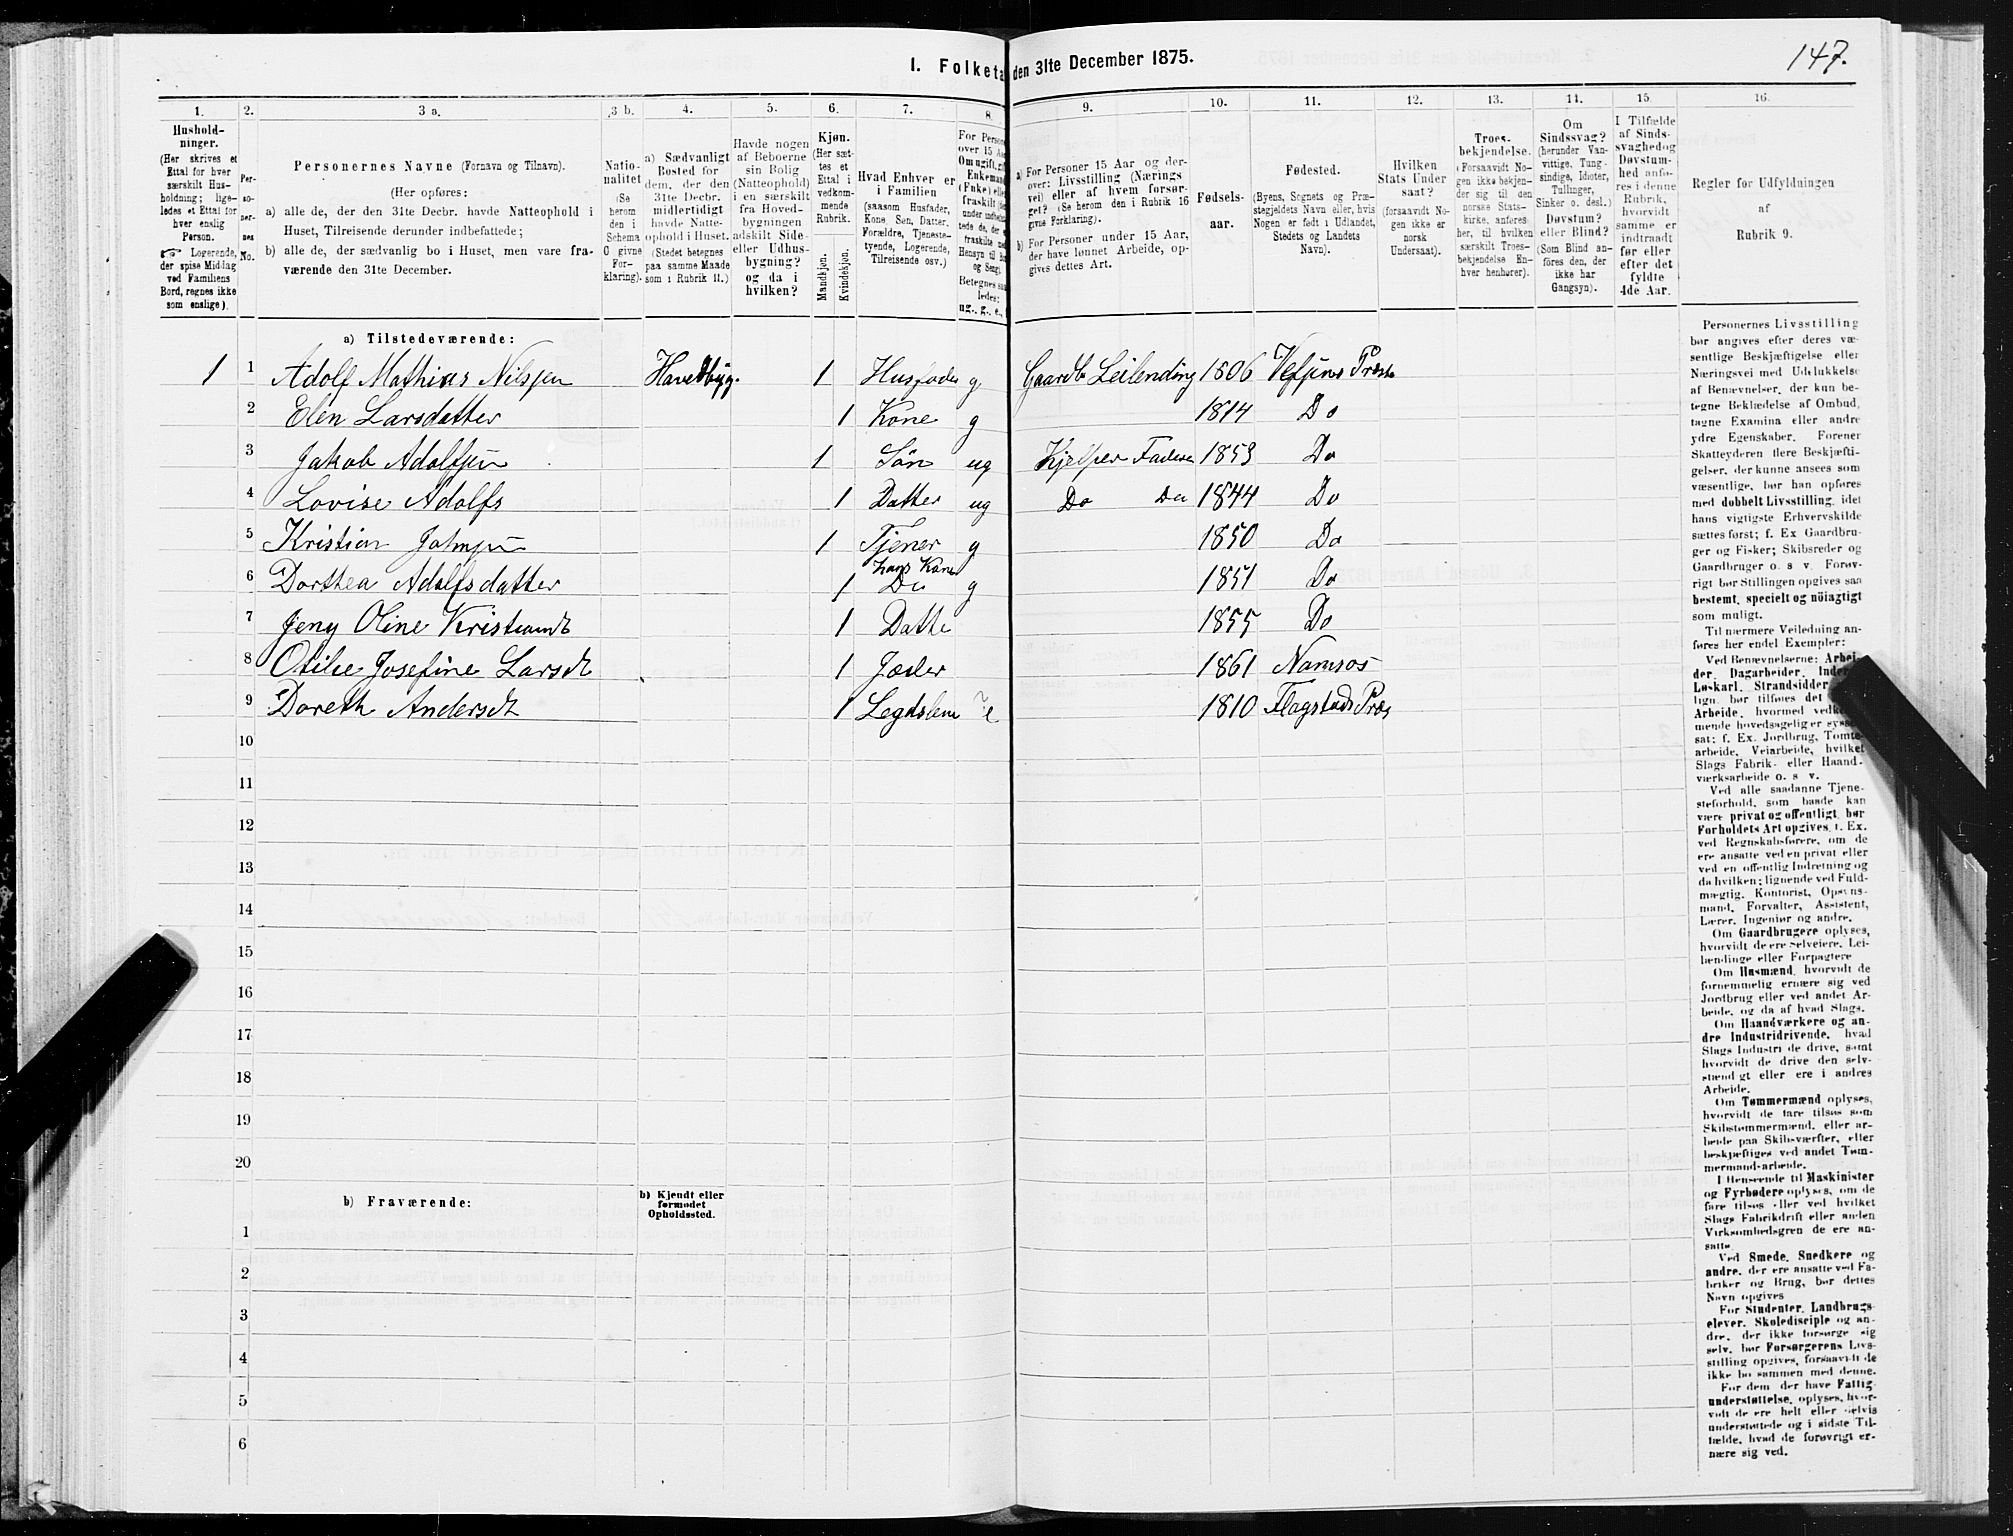 147.
I. Folketa
den 31te December 1875.
1. 2. 3 a. 3 b. 4. 5. 6. 7. 8. 9. 10. 11. 12. 13. 14. 15. 16.
Hushold-
ninger.
(Her skrives et
Ettal for hver
særskilt Hus-
holdning; lige-
ledes et Ettal for
hver enslig
Person.
Logerende,
der spise Middag
ved Familiens
Bord, regnes ikke
som enslige).
Per-
so-
ner-
nes
No.
Personernes Navne (Fornavn og Tilnavn).
(Her opføres:
a) alle de, der den 31te Decbr. havde Natteophold i
Huset, Tilreisende derunder indbefattede;
b) alle de, der sædvanlig bo i Huset, men vare fra-
værende den 31te December.
Natio-
nalitet
(Se
herom
den i
Schema
G givne
For-
klaring).
a) Sædvanligt
Bosted for
dem, der den
31te Decbr.
midlertidigt
havde Natte-
ophold i Huset.
(Stedet betegnes
paa samme Maade
som i Rubrik 11.)
Havde nogen
af Beboerne
sin Bolig
(Natteophold)
i en særskilt
fra Hoved-
bygningen
adskilt Side-
eller Udhus-
bygning?
og da i
hvilken?
Kjøn.
(Her sæt-
tes et
Ettal i
vedkom-
mende
Rubrik.
Mandkjøn.
Kvindekjøn.
Hvad Enhver er
i Familien
(saasom Husfader,
Kone, Søn, Datter,
Forældre, Tjeneste-
tyende, Logerende,
Tilreisende osv.)
For Person
over 15 A
Om ugift, gif
Enkeman
(Enke) elle
fraskilt
ug., g., e.,
a) For Personer 15 Aar og der-
over: Livsstilling (Nærings
vei) eller af hvem forsør-
get? (Se herom den i Rubrik 16
givne Forklaring).
b) For Personer under 15 Aar,
der have lønnet Arbeide, op-
gives dettes Art.
Fødsels-
aar.
Fødested.
(Byens, Sognets og Præ-
stegjeldets Navn eller, hvis
Nogen er født i Udlandet,
Stedets og Landets
Navn).
Hvilken
Stats Under
saat?
(forsaavidt No-
gen ikke er
norsk
Undersaat).
Troes-
bekjendelse.
(Forsaavidt No-
gen ikke bekjen-
der sig til den
norske Stats-
kirke, anføres
her, til hvilken
særskilt Troes-
bekjendelse En-
hver henhører).
Om
Sindssvag?
(herunder Van-
vittige, Tung-
sindige, Idioter,
Tullinger,
Sinker o. desl.)
Døvstum?
eller Blind?
(Som Blind an-
føres den, der
ikke har
Gangsyn).
I Tilfælde
af Sinds-
svaghed og
Døvstum-
hed anfø-
res i denne
Rubrik,
hvorvidt
samme er
indtraadt
før eller
efter det
fyldte
4de Aar.
Regler for Udfyldningen
af
Rubrik 9.
a) Tilstedeværende:
1 1 Adolf Mathias Nilsen 1 Husfader g Gaardb Leilending 1806 Vefsens Præst
2 Elen Larsdatter 1 Kone g 1814 Do
3 Jakob Adolfsen 1 Søn ug Hjelper Faderen 1853 Do
4 Lovise Adolfs 1 Datter ug Do Do 1844 Do
5 Kristian Johnsen 1 Tjener g 1850 Do
hans Kone
6 Dorthea Adolfsdatter 1 Do g 1851 Do
7 Jeny Oline Kristiansdt 1 Datte 1855 Do
8 Otilie Josefine Larsdt 1 1861 Namsos
9 Doreth Andersdt 1 Legdslem e 1810 Flagstads Præs
10
11
12
13
14
15
16
17
18
19
20
b) Fraværende:
b) Kjendt eller
formodet
Opholdssted.
1
2
3
4
5
6
Personernes Livsstilling
bør angives efter deres væ-
sentlige Beskjæftigelse eller
Næringsvei med Udelukkelse
af Benævnelser, der kun be-
tegne Beklædelse af Ombud,
tagne Examina eller andre
ydre Egenskaber. Forener
Skatteyderen flere Beskjæfti-
gelser, der kunne ansees som
væsentlige, bør han opføres
med dobbelt Livsstilling, idet
hans vigtigste Erhvervskilde
sættes først; f. Ex Gaardbru-
ger og Fisker; Skibsreder og
Gaardbruger o. s v. Forøv-
rigt bør Stillingen opgives saa
bestemt, specielt og nöiagtigt
som muligt.
Til nærmere Veiledning an-
føres her endel Exempler:
Ved Benævnelserne: Arbei-
der, Dagarbeider, Inder
Løskarl, Strandsidder
lign. bør tilføies det
Arbeide, hvormed vedko
mende hovedsagelig er syssel-
sat; f. Ex. Jordbrug, Tomte-
arbeide, Veiarbeide, hvilket
Slags Fabrik- eller Haand-
værksarbeide o. s v.
Ved alle saadanne Tjene-
steforhold, som baade kan
være privat og offentligt, bør
Forholdets Art opgives, f. Ex.
ved Regnskabsførere, om de
ere ansatte ved en privat eller
ved en offentlig Indretning og
da hvilken; lignende ved Fuld-
mægtig, Kontorist, Opsyns-
mand, Forvalter, Assistent,
Lærer, Ingeniør og andre.
Om Gaardbrugere oplyses,
hvorvidt de ere Selveiere, Lei-
lændinge eller Forpagtere
Om Husmænd, hvorvidt de
fornemmelig ernære sig ved
Jordbrug eller ved andet Ar-
beide, og da af hvad Slags.
Om Haandværkere og an-
dre Industridrivende, hvad
Slags Industri de drive, samt
hvorvidt de drive den selv-
stændigt eller ere i andres
Arbeide.
Om Tømmermænd oplyses,
hvorvidt de fare tilsøs som
Skibstømmermænd, eller ar-
beide paa Skibsværfter, eller
beskjæftiges ved andet Tøm-
mermand-arbeide.
I Henseende til Maskinister
og Fyrbødere oplyses, om de
fare tilsøs eller ved hvilket
Slags Fabrikdrift eller anden
Virksomhedsgren de ere an-
satte.
Ved Smede, Snedkere og
andre, der ere ansatte ved Fa-
briker og Brug, bør dettes
Navn opgives
For Studenter, Landbrugs-
elever, Skoledisciple og an-
dre, der ikke forsørge sig
selv, bør Forsørgerens Livs-
stilling opgives, forsaavidt de
ikke bo sammen med denne.
For dem, der have Fattig-
understøttelse, oplyses, hvor-
vidt de ere helt eller delvis
understøttede og i sidste Til-
fælde, hvad de forøvrigt er-
nære sig ved.